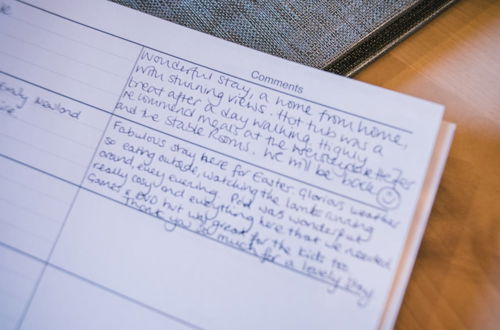 Comments
Wonderful stay, a home from home,
with stunning views. Hot tub was a
treat after a day walking. Highly
recommend meals at the
and the Stable Rooms. We will be back
Fabulous stay here for Easter. Glorious weather
so eating outside, watching the lambs running
around every evening. Pod was wonderful
really cosy and everything here that we needed.
Games & DVD hut was great for the kids too.
Thank you so much for a lovely stay